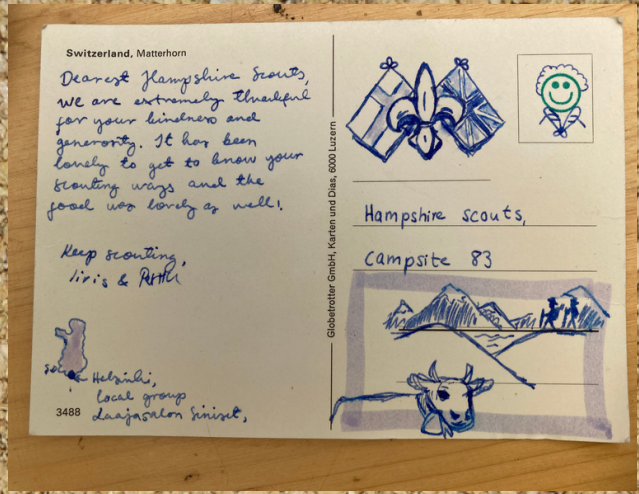 Switzerland, Matterhorn
Dearest Hampshire Scouts,
we are extremely thankful
for your kindness and
generosity. It has been
lovely to get to know your
scouting ways and the
food was lovely as well!
Keep scouting,
Iiris &
Helsinki,
local group
Laajasalon Siniset,
3488
Globetrotter GmbH, Karten und Dias, 6000 Luzern
Hampshire scouts,
Campsite 83